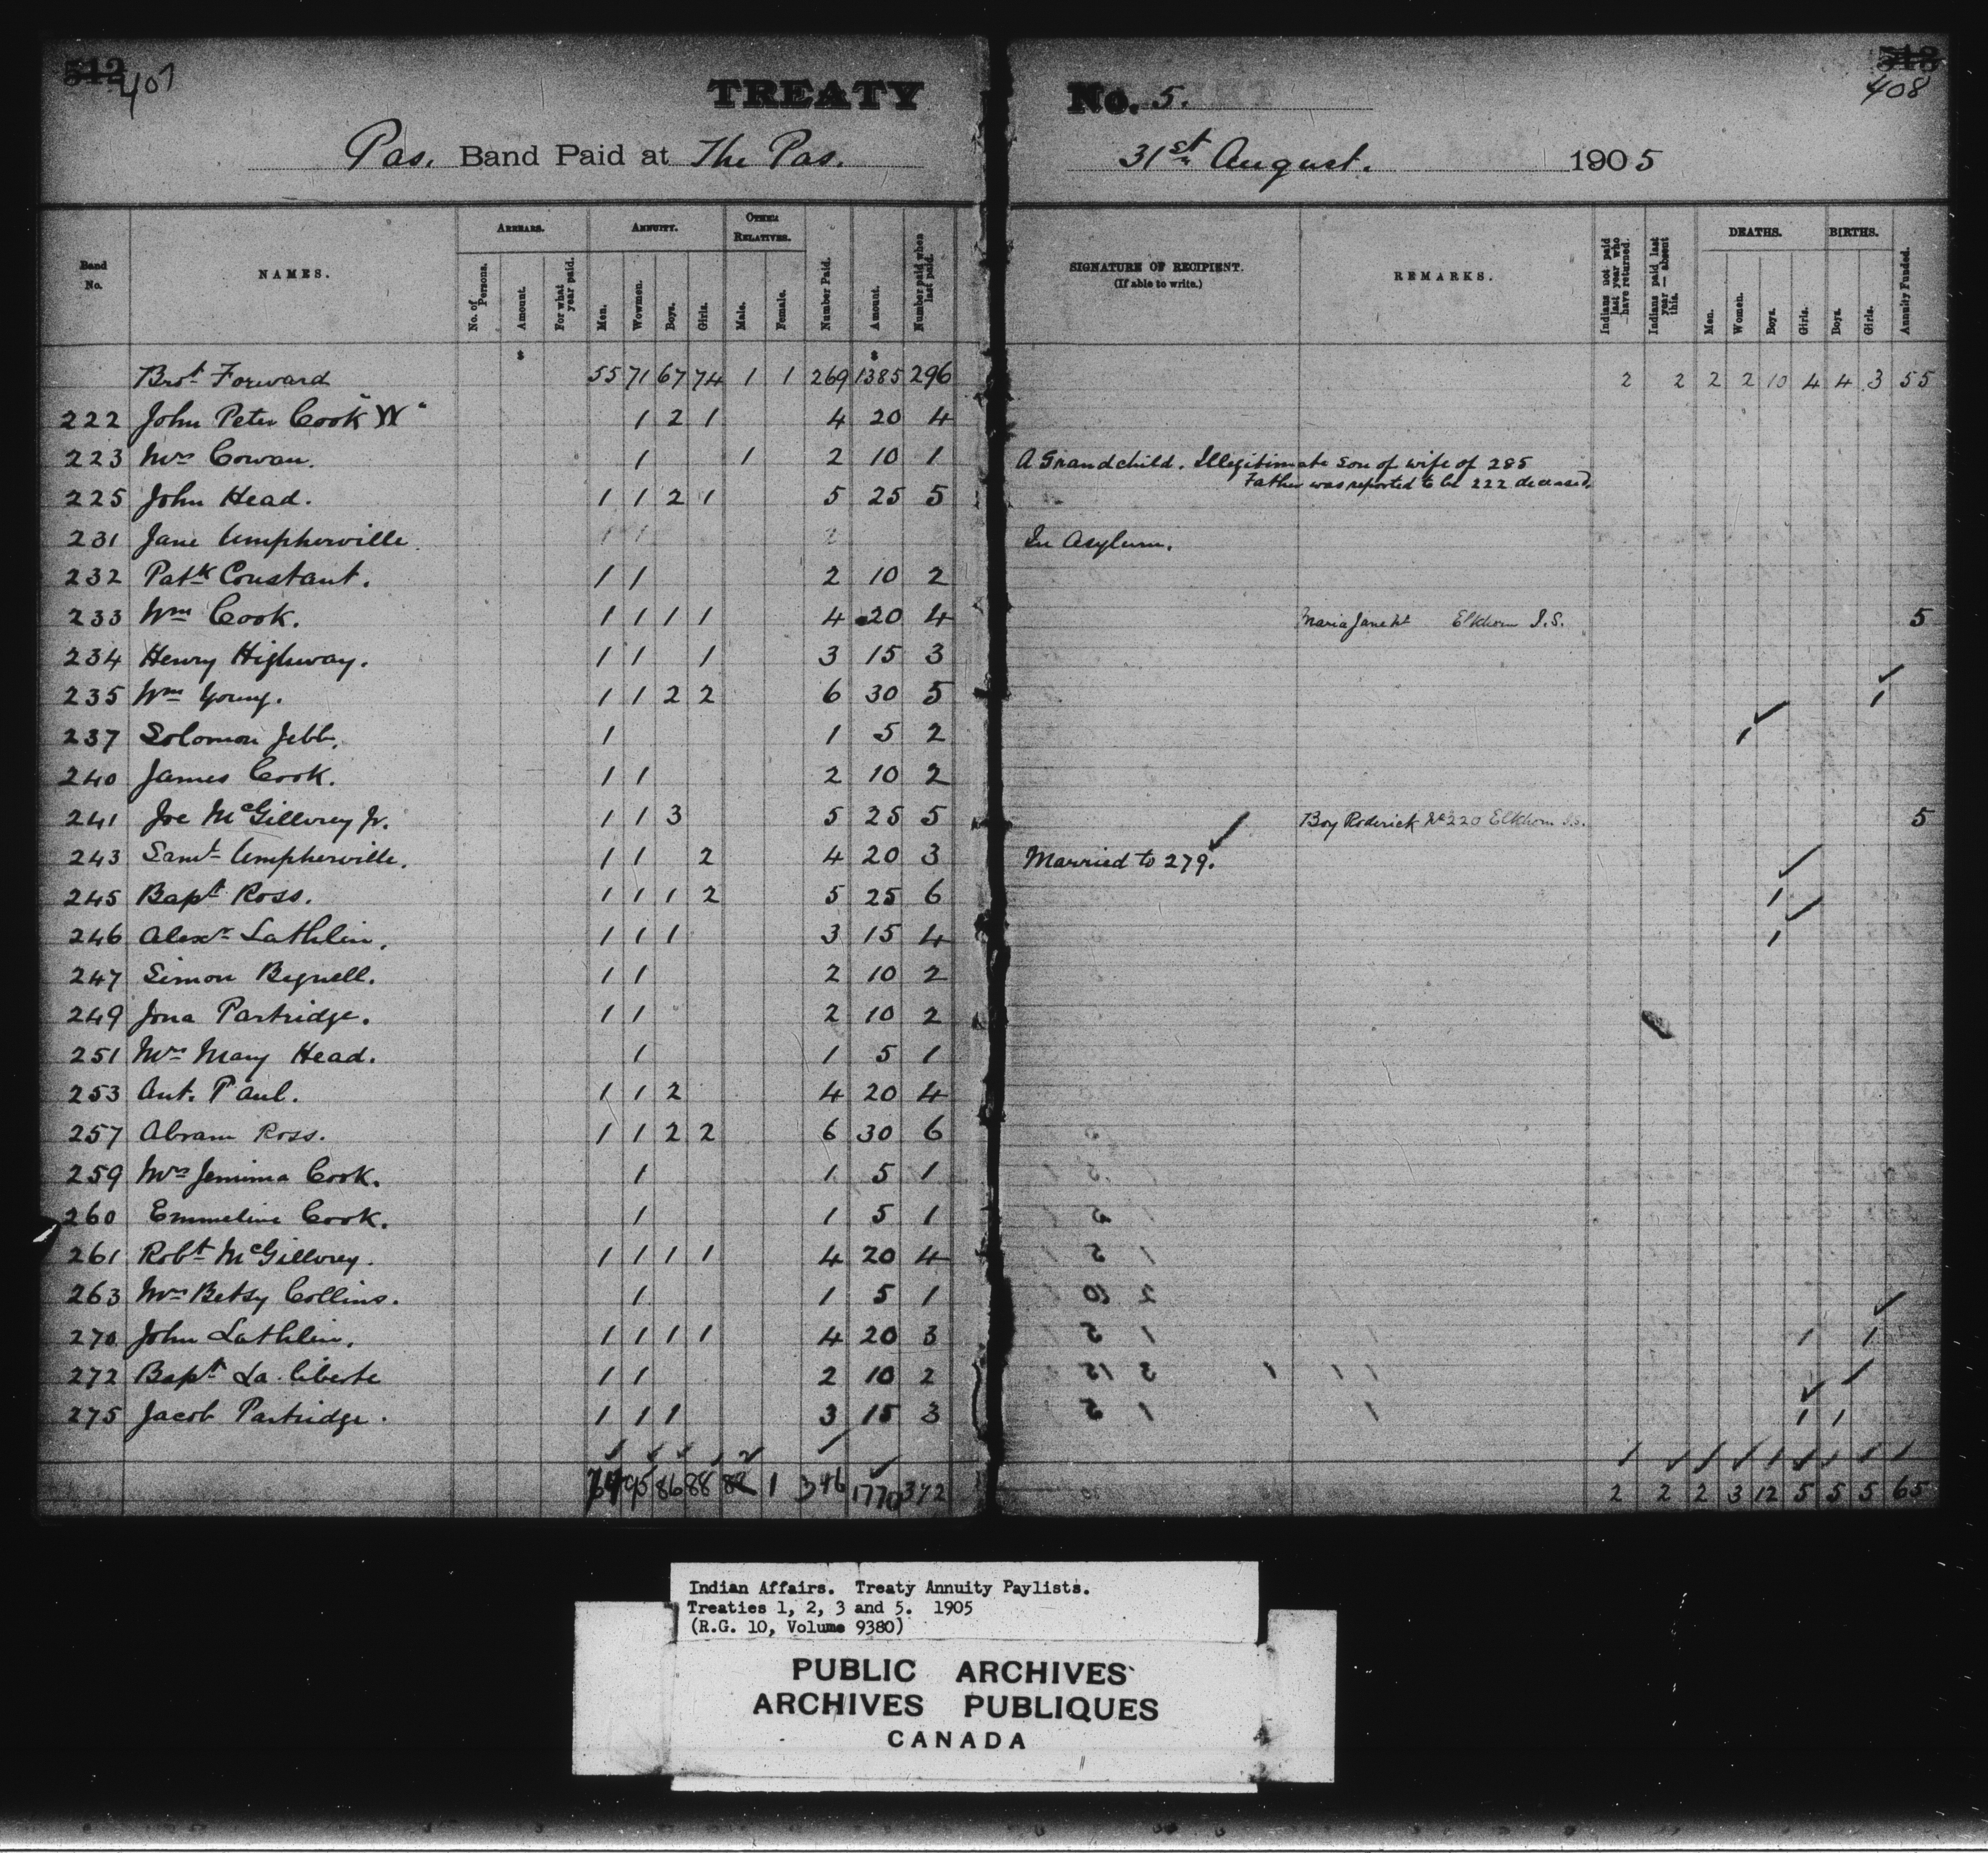 512 407
TREATY No. 5.
513 408
Pas. Band Paid at The Pas. 31st August. 1905
Band No. NAMES. ARREARS. ANNUITY. OTHER RELATIVES. Number Paid. Amount. Number paid when last paid. SIGNATURE OF RECIPIENT. (If able to write.) REMARKS. Indians not paid last year who have returned. Indians paid last year — absent this. DEATHS. BIRTHS. Annuity Funded.
No. of Persons. Amount. For what year paid. Men. Wowmen. Boys. Girls. Male. Female. Men. Women. Boys. Girls. Boys. Girls.
$ $
Brot Forward 55 71 67 74 1 1 269 1385 296 2 2 2 2 10 4 4 3 55
222 John Peter Cook "W" 1 2 1 4 20 4
223 Mrs Cowan. 1 1 2 10 1 A Grandchild. Illegitimate son of wife of 285
Father was reported to be 222 deceased.
225 John Head. 1 1 2 1 5 25 5
231 Jane Umpherville. In Asylum.
232 Patk Constant. 1 1 2 10 2
233 Wm Cook. 1 1 1 1 4 20 4 Maria Jane Elkhorn I.S. 5
234 Henry Highway. 1 1 1 3 15 3
235 Wm Young. 1 1 2 2 6 30 5 1
237 Solomon Jebb. 1 1 5 2 1
240 James Cook. 1 1 2 10 2
241 Joe McGillvrey Jr. 1 1 3 5 25 5 Boy Roderick No 220 Elkhorn I.S. 5
243 Saml Umpherville. 1 1 2 4 20 3 Married to 279.
245 Bapt Ross. 1 1 1 2 5 25 6 1
246 Alexr Lathlin. 1 1 1 3 15 4 1
247 Simon Bignell. 1 1 2 10 2
249 Jona Partridge. 1 1 2 10 2
251 Mrs Mary Head. 1 1 5 1
253 Ant. Paul. 1 1 2 4 20 4
257 Abram Ross. 1 1 2 2 6 30 6
259 Mrs Jemima Cook. 1 1 5 1
260 Emmeline Cook. 1 1 5 1
261 Robt McGillvrey. 1 1 1 1 4 20 4
263 Mrs Betsy Collins. 1 1 5 1
270 John Lathlin. 1 1 1 1 4 20 3 1 1
272 Bapt La liberte 1 1 2 10 2
275 Jacob Partridge. 1 1 1 3 15 3 1 1
95 86 88 1 346 1770 372 2 2 2 3 12 5 5 5 65
Indian Affairs. Treaty Annuity Paylists.
Treaties 1, 2, 3 and 5. 1905
(R.G. 10, Volume 9380)
PUBLIC ARCHIVES
ARCHIVES PUBLIQUES
CANADA